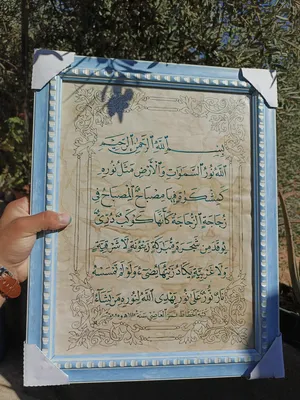 بِسْمِ اللَّهِ الرَّحْمَٰنِ الرَّحِيمِ
اللَّهُ نُورُ السَّمَاوَاتِ وَالْأَرْضِ مَثَلُ نُورِهِ
كَمِشْكَاةٍ فِيهَا مِصْبَاحٌ الْمِصْبَاحُ فِي
زُجَاجَةٍ الزُّجَاجَةُ كَأَنَّهَا كَوْكَبٌ دُرِّيٌّ
يُوقَدُ مِنْ شَجَرَةٍ مُبَارَكَةٍ زَيْتُونَةٍ لَا شَرْقِيَّةٍ
وَلَا غَرْبِيَّةٍ يَكَادُ زَيْتُهَا يُضِيءُ وَلَوْ لَمْ تَمْسَسْهُ
نَارٌ نُورٌ عَلَى نُورٍ يَهْدِي اللَّهُ لِنُورِهِ مَنْ يَشَاءُ